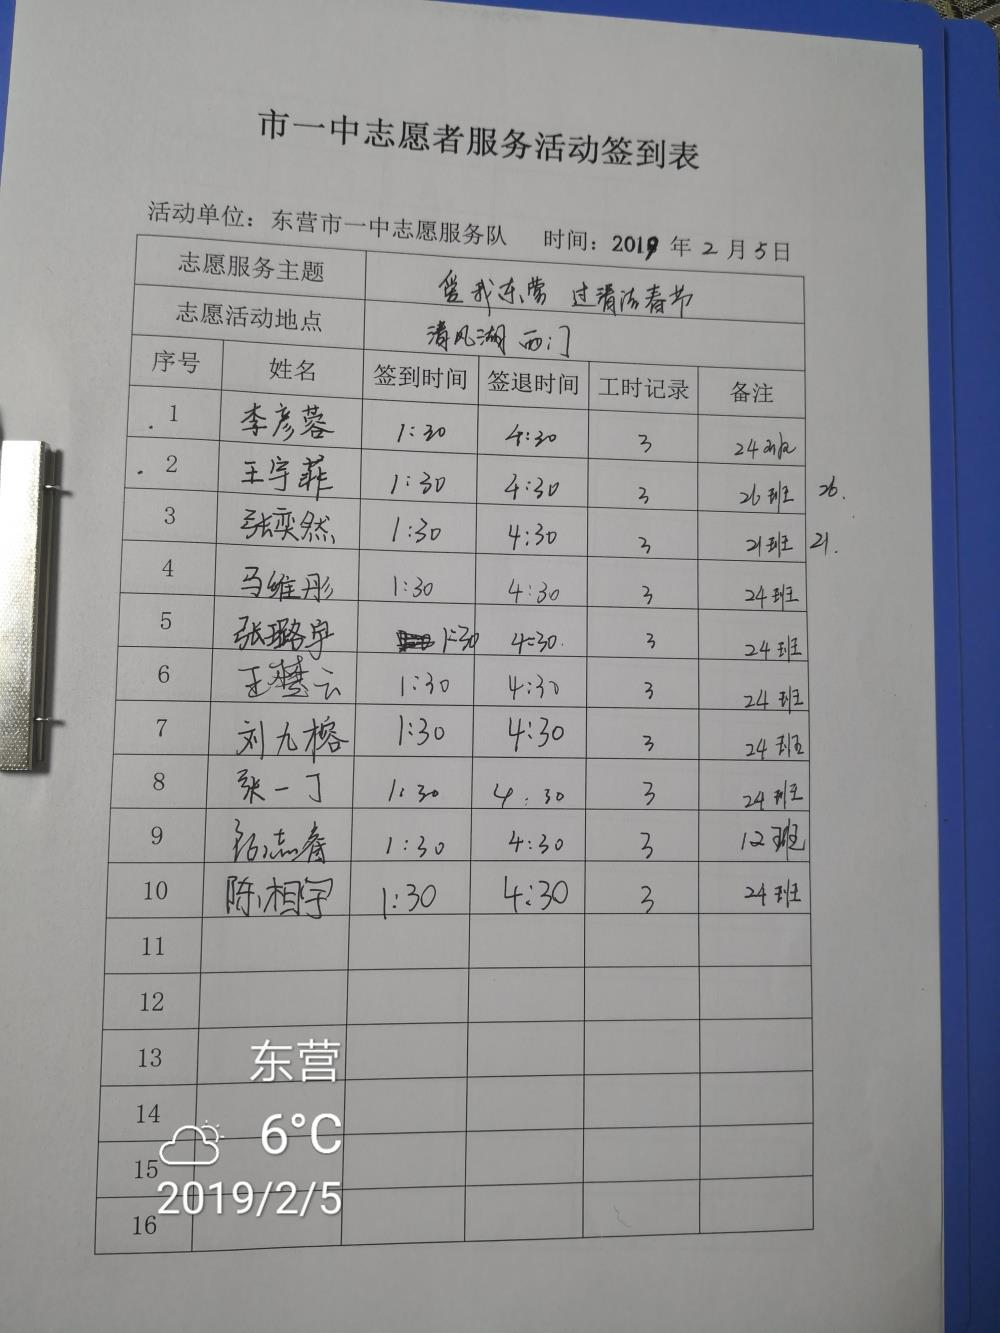 市一中志愿者服务活动签到表
活动单位：东营市一中志愿服务队 时间：2019 年 2 月 5 日
志愿服务主题 爱我东营 过清洁春节
志愿活动地点 清风湖 西门
序号 姓名 签到时间 签退时间 工时记录 备注
1 李彦蓉 1:30 4:30 3 24班
2 王宇菲 1:30 4:30 3 26班 26.
3 张奕然 1:30 4:30 3 21班 21.
4 马维彤 1:30 4:30 3 24班
5 张璐宇 1:30 4:30. 3 24班
6 王 云 1:30 4:30 3 24班
7 刘九榕 1:30 4:30 3 24班
8 张一丁 1:30 4:30 3 24班
9 志 1:30 4:30 3 12班
10 陈相宇 1:30 4:30 3 24班
11
12
13
14
15
16
东营
6°C
2019/2/5